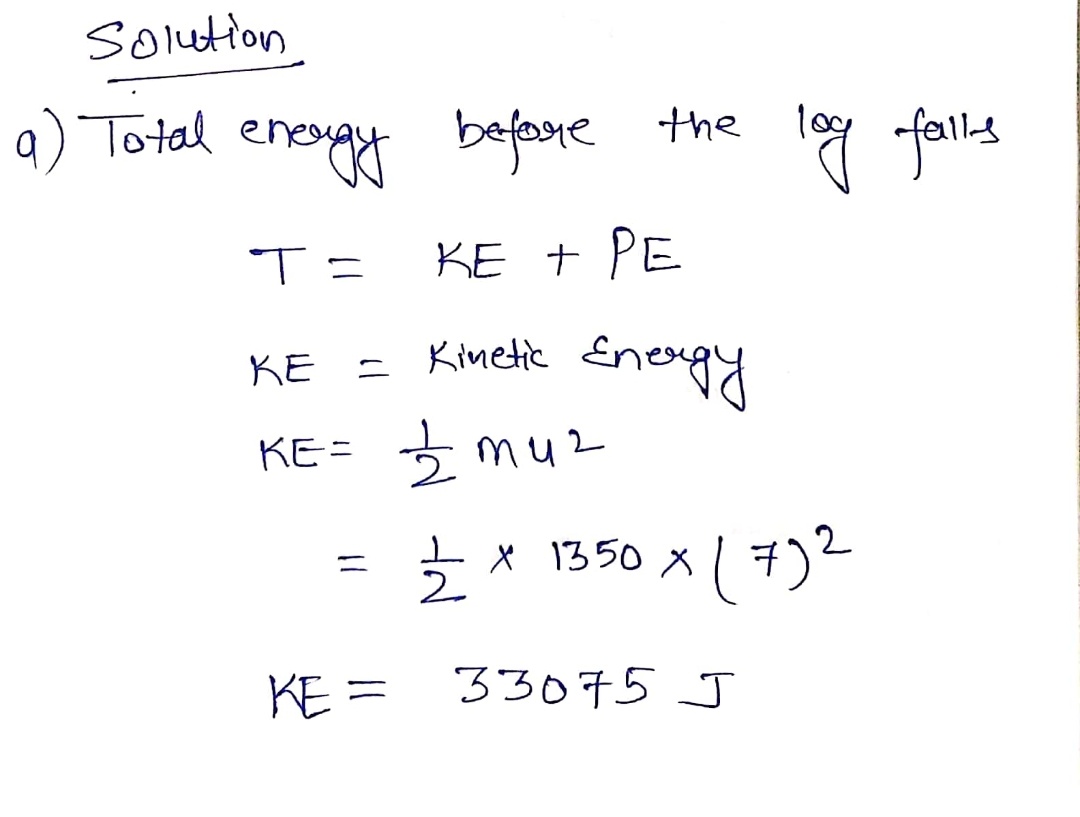 Solution
a) Total energy before the log falls
T = KE + PE
KE = Kinetic Energy
KE = 1/2 mu2
= 1/2 × 1350 × (7)²
KE = 33075 J